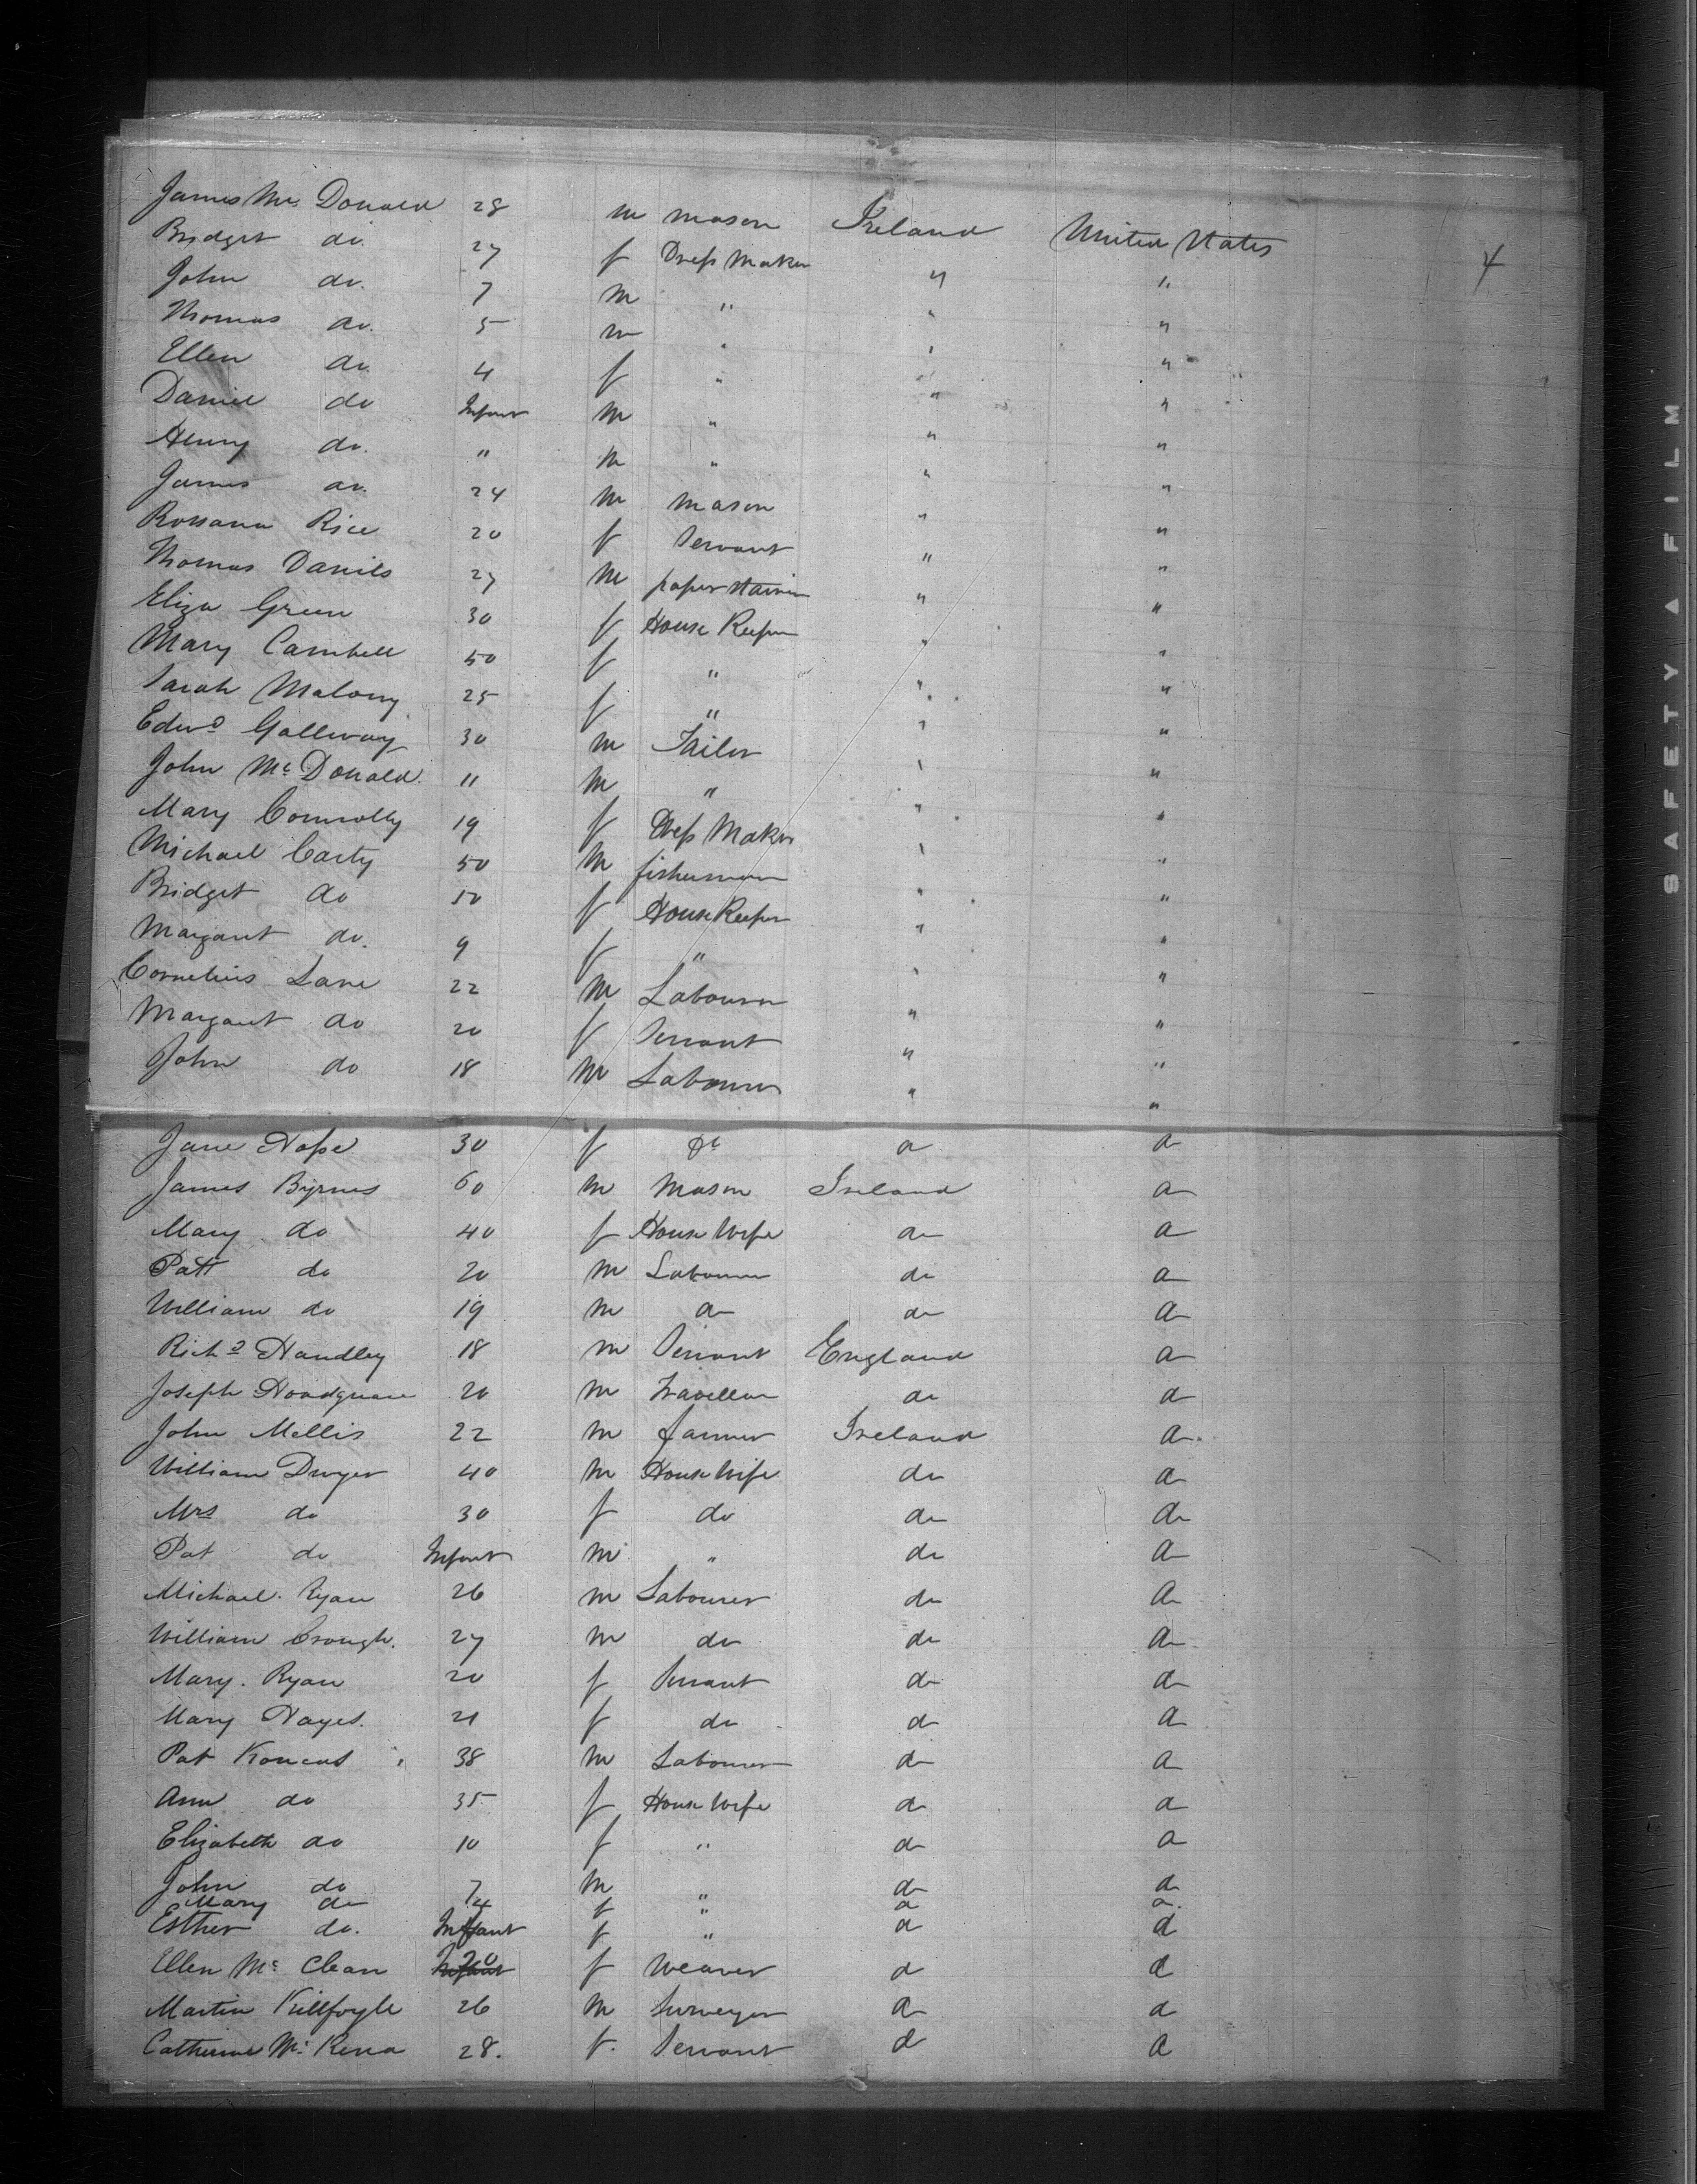 James Mc Donald 28 m mason Ireland United States
Bridget do. 27 f Dress Maker " "
4
John do. 7 m " " "
Thomas do. 5 m " " "
Ellen do. 4 f " " "
Daniel do Infant m " " "
Henry do. " m " " "
James do. 24 m Mason " "
Rossana Rice 20 f Servant " "
Thomas Daniels 27 m paper stainer " "
Eliza Green 30 f House Keeper " "
Mary Cambell 50 f " " "
Sarah Malony 25 f " " "
Edwd Gallway 30 m Tailor " "
John Mc Donald. 11 m " " "
Mary Connolly 19 f Dress Maker " "
Michael Carty 50 m fisherman " "
Bridget do 50 f House Keeper " "
Margaret do. 9 f " " "
Cornelius Lane 22 m Labourer " "
Margaret do 20 f Servant " "
John do 18 m Labourer " "
Jane 30 f do do do
James Byrnes 60 m Mason Ireland do
Mary do 40 f House Wife do do
Patt do 20 m Labourer do do
William do 19 m do do do
Richd Handley 18 m Servant England do
Joseph 20 m Traveller do do
John Mellis 22 m farmer Ireland do
William Dwyer 40 m House Wife do do
Mrs do 30 f do do do
Pat do Infant m " do do
Michael Ryan 26 m Labourer do do
William Crough. 27 m do do do
Mary. Ryan 20 f Servant do do
Mary Hayes. 21 f do do do
Pat 38 m Labourer do do
Ann do 35 f House Wife do do
Elizabeth do 10 f " do do
John do 7 m " do do
Mary do 4 f " do do
Esther do. Infant f " do do
Ellen Mc Clean 20 f Weaver do do
Martin Killfoyle 26 m Surveyor do do
Catherine Mc Kena 28. f. Servant do do
SAFETY FILM